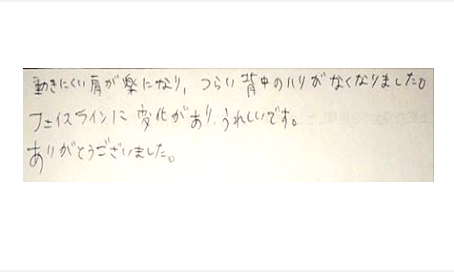 動きにくい肩が楽になり、つらい背中のハリがなくなりました。
フェイスラインに変化があり、うれしいです。
ありがとうございました。